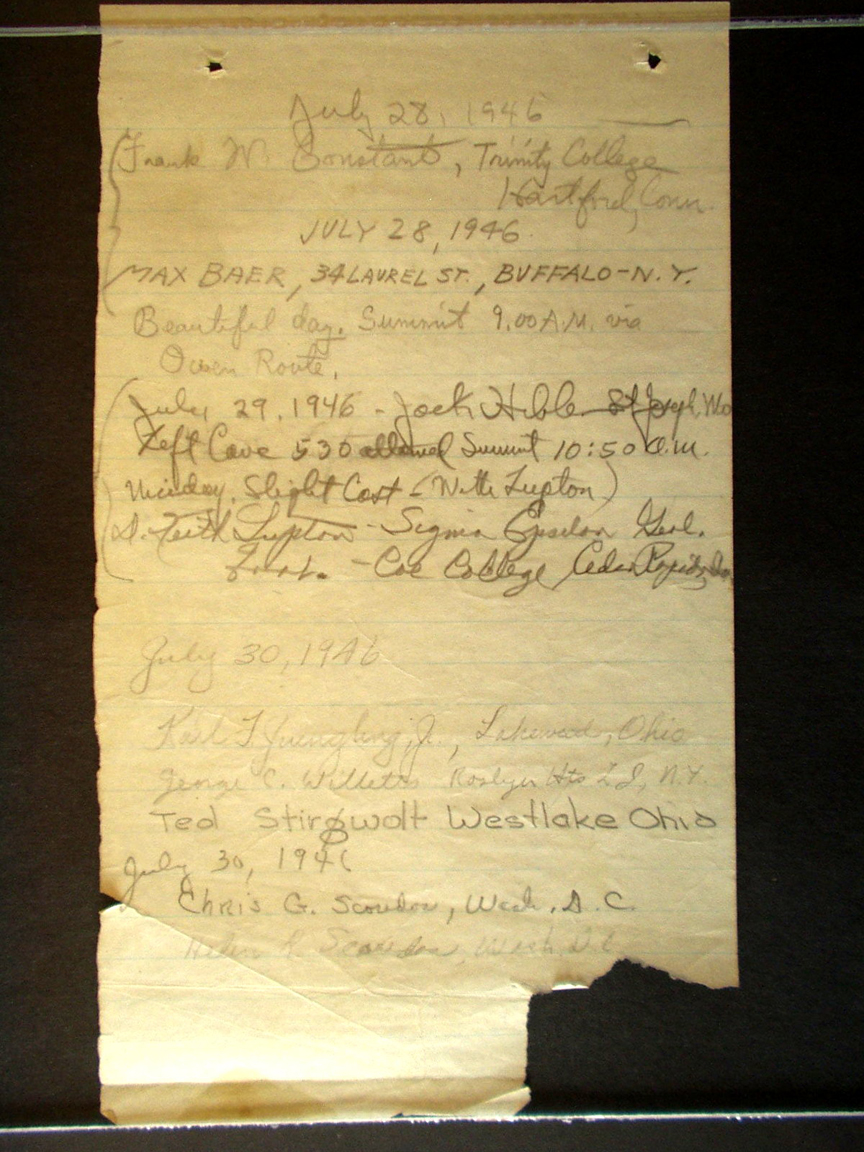 July 28, 1946
Frank W. Constant, Trinity College
Hartford, Conn.
JULY 28, 1946
MAX BAER, 34 LAUREL ST., BUFFALO-N.Y.
Beautiful day. Summit 9.00 A.M. via
Owen Route.
July 29, 1946 - Jack Hible St Joseph, Mo
Left Cave 530 Summit 10:50 A.M.
Slight Cost - (With Lupton)
D. Keith Lupton - Sigma Epsilon
- Coe College, Cedar Rapids, Ia
July 30, 1946
Karl F. Juengling, Jr., Lakewood, Ohio
George C. Willetts Roslyn Hts L I, N.Y.
Ted Stirgwolt Westlake Ohio
July 30, 194
Chris G. Scoredos, Wash. D.C.
Helen Scoredos, Wash, D.C.